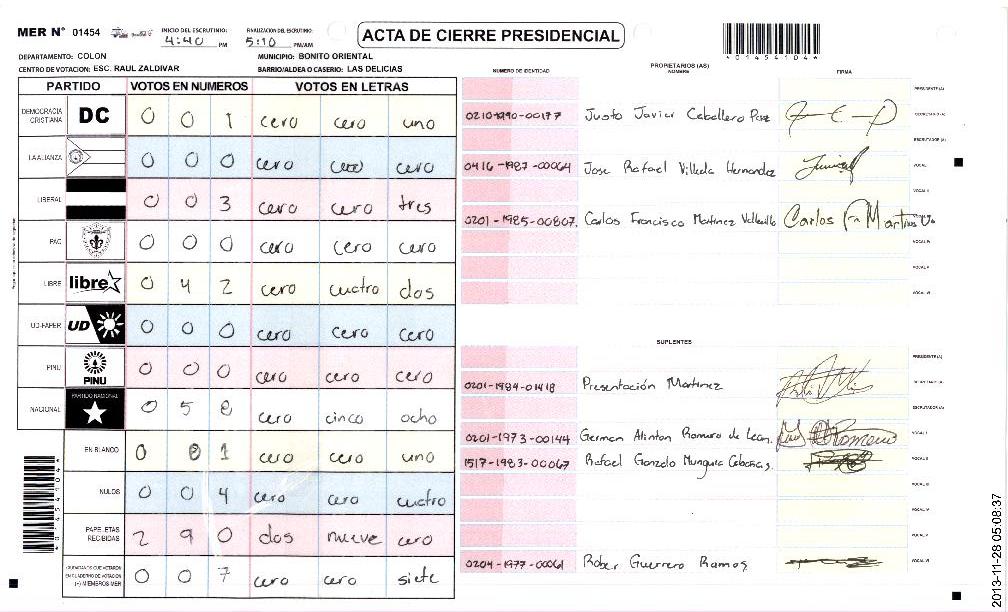 MER N° 01454
INICIO DEL ESCRUTINIO: 4:40 PM
FINALIZACION DEL ESCRUTINIO: 5:10 PM/AM
ACTA DE CIERRE PRESIDENCIAL
*01454104*
DEPARTAMENTO: COLON
MUNICIPIO: BONITO ORIENTAL
CENTRO DE VOTACION: ESC. RAUL ZALDIVAR
BARRIO/ALDEA O CASERIO: LAS DELICIAS
PARTIDO VOTOS EN NUMEROS VOTOS EN LETRAS
DEMOCRACIA CRISTIANA DC 0 0 1 cero cero uno
LA ALIANZA 0 0 0 cero cero cero
LIBERAL 0 0 3 cero cero tres
PAC 0 0 0 cero cero cero
LIBRE libre 0 4 2 cero cuatro dos
UD-FAPER UD 0 0 0 cero cero cero
PINU PINU 0 0 0 cero cero cero
NACIONAL PARTIDO NACIONAL 0 5 8 cero cinco ocho
EN BLANCO 0 0 1 cero cero uno
NULOS 0 0 4 cero cero cuatro
PAPELETAS RECIBIDAS 2 9 0 dos nueve cero
CIUDADANOS QUE VOTARON EN CUADERNO DE VOTACION (+) MIEMBROS MER 0 0 7 cero cero siete
*01454104*
NUMERO DE IDENTIDAD
PROPIETARIOS (AS)
NOMBRE
FIRMA
PRESIDENTE (A)
0210-1990-00177 Justo Javier Caballero Paz SECRETARIO (A)
ESCRUTADOR (A)
0416-1987-00064 Jose Rafael Villeda Hernandez VOCAL I
VOCAL II
0201-1985-00807 Carlos Francisco Martinez Vallecillo Carlos Fr Martinez VOCAL III
VOCAL IV
VOCAL V
VOCAL VI
SUPLENTES
PRESIDENTE (A)
0201-1984-01418 Presentación Martinez SECRETARIO (A)
ESCRUTADOR (A)
0201-1973-00144 German Alinton Romero de Leon Romero VOCAL I
1517-1983-00067 Rafael Gonzalo Munguia Cabañas VOCAL II
VOCAL III
VOCAL IV
VOCAL V
0204-1977-00061 Rober Guerrero Ramos VOCAL VI
2013-11-28 05:08:37